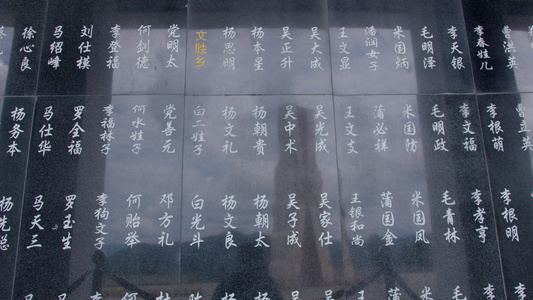 曹洪英 曹立英
李春娃儿 李根萌 李根明
李天银 李文福 李孝亨
毛明泽 毛明政 毛青林
米国炳 米国防 米国凤
潘润女子 蒲必祥 蒲国金
王文显 王文支 王银和尚
吴大成 吴光成 吴家仕
吴正升 吴中术 吴子成
杨本星 杨朝贵 杨朝太
杨思明 杨文礼 杨文良
文胜乡 白一娃子 白光斗
党明太 党善元 邓方礼
何剑德 何水娃子 何贻举
李登福 李福林子 李狗文子
刘仕模 罗全福 罗玉生
马绍峰 马仕华 马天三
徐心良 杨务本